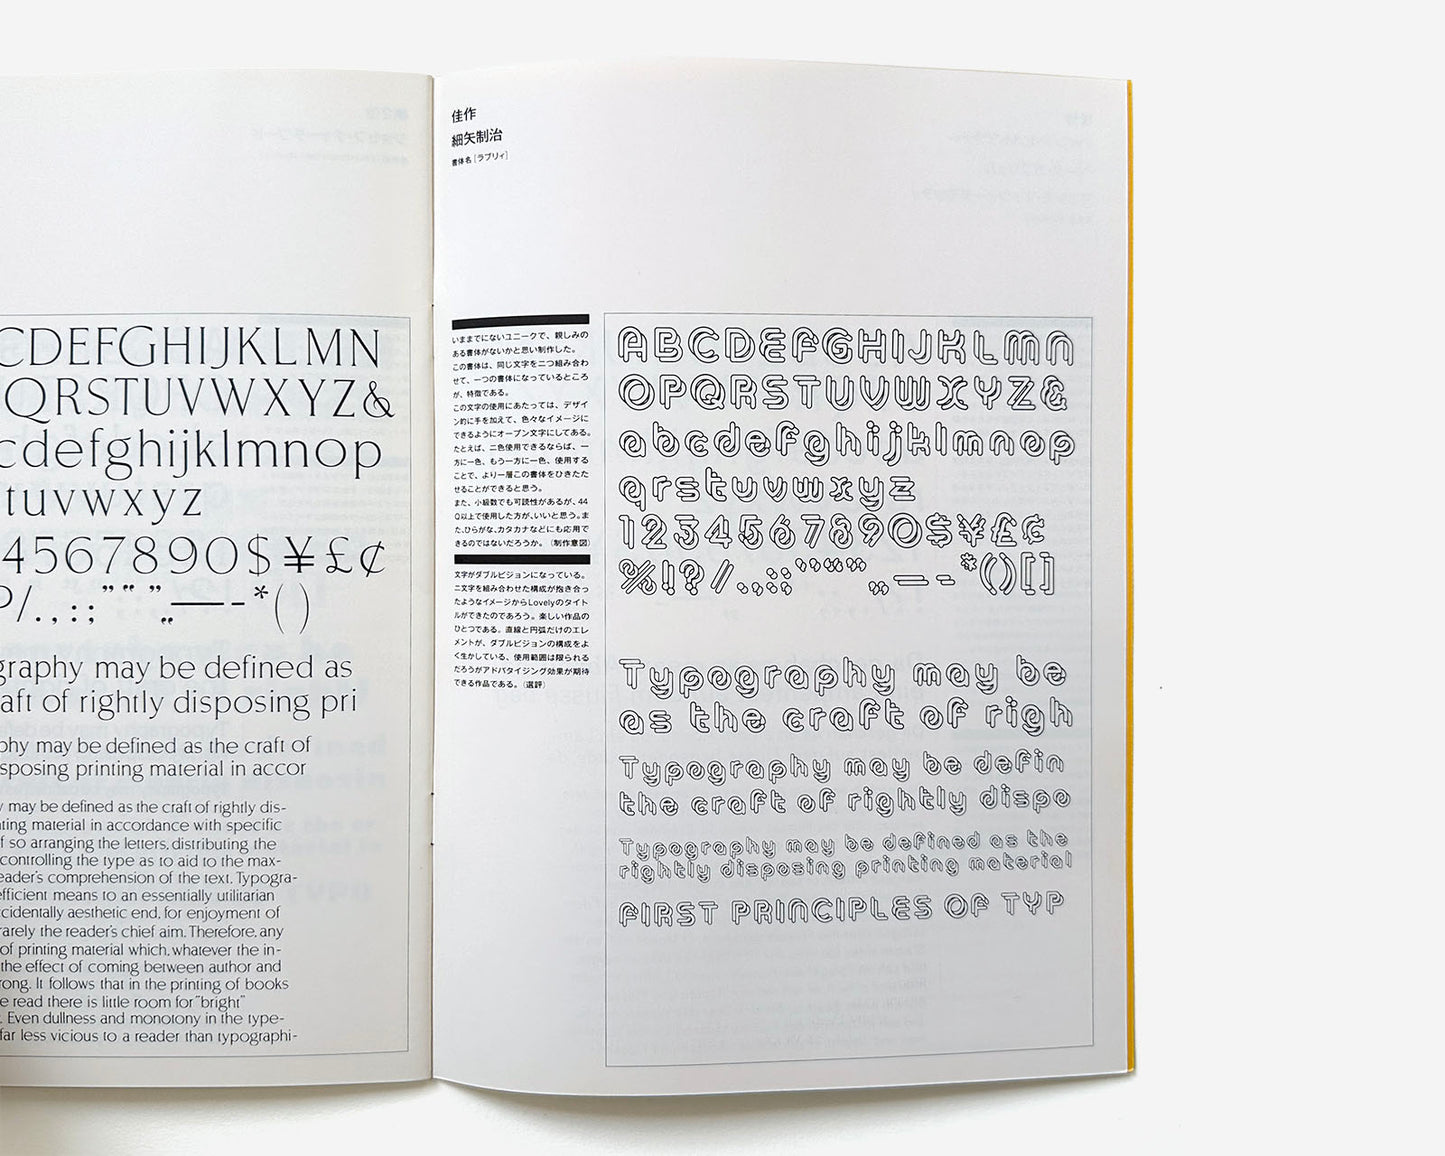 CDEFGHIJKLMN
QRSTUVWXYZ&
cdefghijklmnop
tuvwxyz
4567890$¥£¢
/.,:;
—-*()
graphy may be defined as
aft of rightly disposing pri
phy may be defined as the craft of
sposing printing material in accor
y may be defined as the craft of rightly dis-
ting material in accordance with specific
f so arranging the letters, distributing the
controlling the type as to aid to the max-
eader's comprehension of the text. Typogra-
efficient means to an essentially utilitarian
ccidentally aesthetic end, for enjoyment of
rarely the reader's chief aim. Therefore, any
of printing material which, whatever the in-
the effect of coming between author and
rong. It follows that in the printing of books
e read there is little room for "bright"
. Even dullness and monotony in the type-
far less vicious to a reader than typographi-
佳作
細矢制治
書体名[ラブリィ]
いままでにないユニークで、親しみの
ある書体がないかと思い制作した。
この書体は、同じ文字を二つ組み合わ
せて、一つの書体になっているところ
が、特徴である。
この文字の使用にあたっては、デザイ
ン的に手を加えて、色々なイメージに
できるようにオープン文字にしてある。
たとえば、二色使用できるならば、一
方に一色、もう一方に一色、使用する
ことで、より一層この書体をひきたた
せることができると思う。
また、小級数でも可読性があるが、44
Q以上で使用した方が、いいと思う。ま
た、ひらがな、カタカナなどにも応用で
きるのではないだろうか。(制作意図)
文字がダブルビジョンになっている。
二文字を組み合わせた構成が抱き合っ
たようなイメージからLovelyのタイト
ルができたのであろう。楽しい作品の
ひとつである。直線と円弧だけのエレ
メントが、ダブルビジョンの構成をよ
く生かしている、使用範囲は限られる
だろうがアドバタイジング効果が期待
できる作品である。(選評)
ABCDEFGHIJKLMN
OPQRSTUVWXYZ&
abcdefghijklmnop
qrstuvwxyz
1234567890$¥£¢
%!?/.,:;""„—-*()[]
Typography may be
as the craft of righ
Typography may be defin
the craft of rightly dispo
Typography may be defined as the
rightly disposing printing material
FIRST PRINCIPLES OF TYP